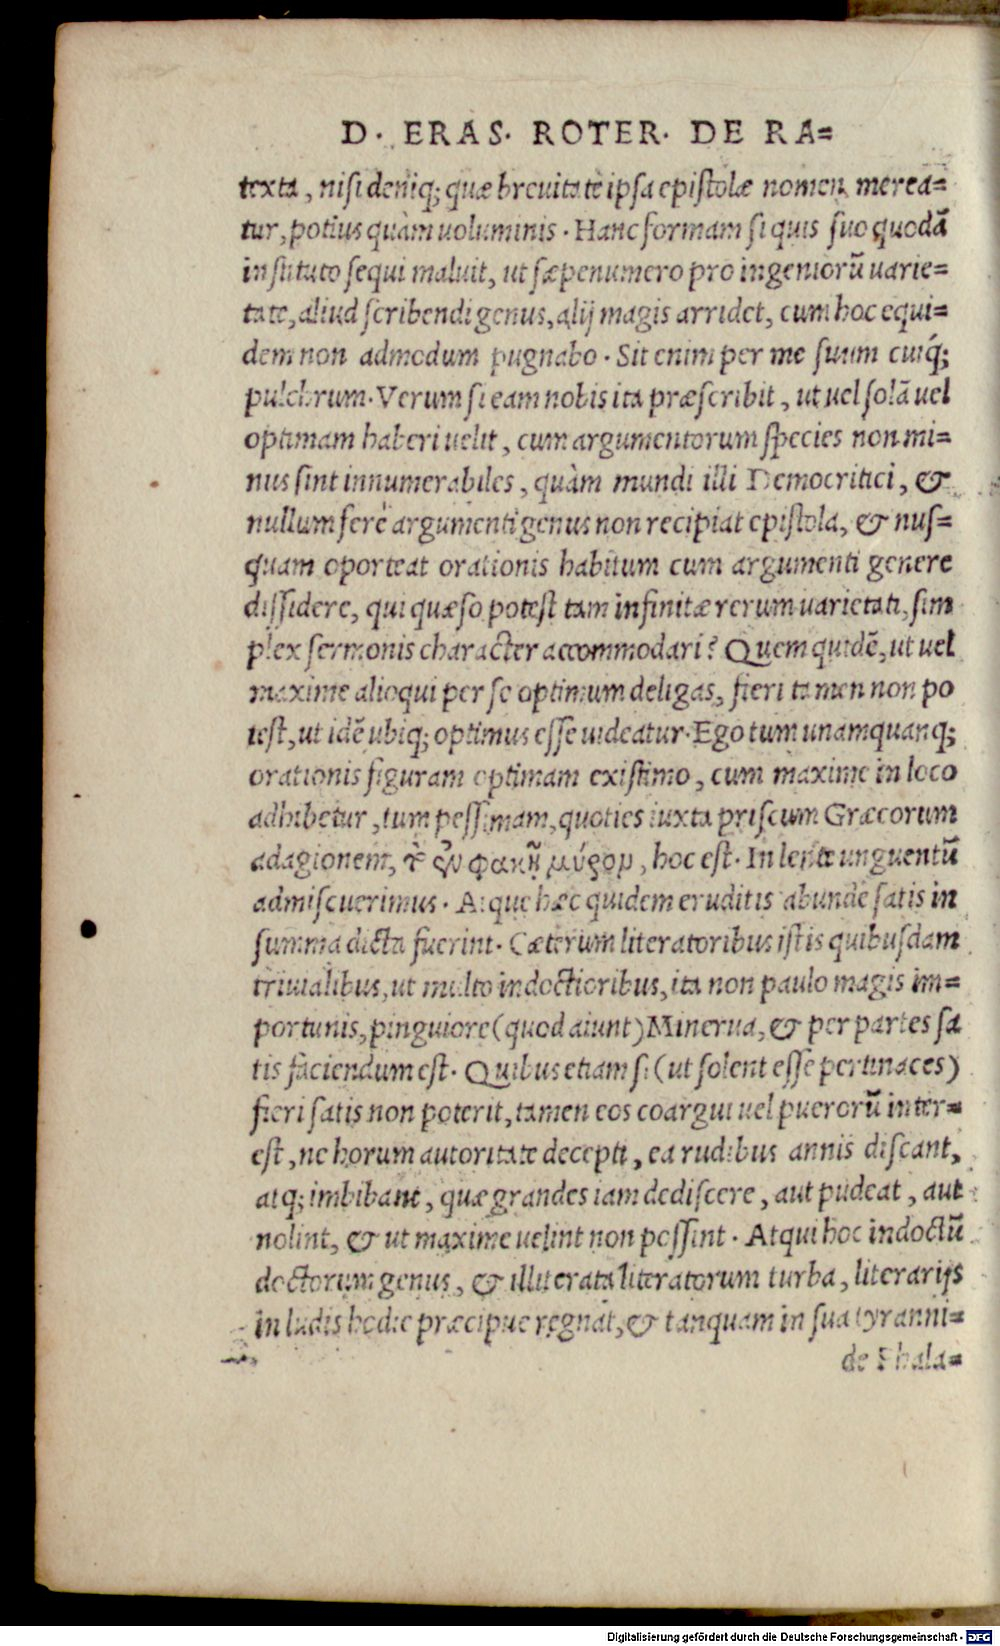 D. ERAS. ROTER. DE RA=
texta, nisi deniq; quæ breuitate ipsa epistolæ nomen merea=
tur, potius quàm uoluminis. Hanc formam si quis suo quodã
instituto sequi maluit, ut sæpenumero pro ingeniorũ uarie=
tate, aliud scribendi genus, alij magis arridet, cum hoc equi=
dem non admodum pugnabo. Sit enim per me suum cuiq́;
pulchrum. Verum si eam nobis ita præscribit, ut uel solã uel
optimam haberi uelit, cum argumentorum species non mi=
nus sint innumerabiles, quàm mundi illi Democritici, &
nullum ferè argumenti genus non recipiat epistola, & nus=
quam oporteat orationis habitum cum argumenti genere
dissidere, qui quæso potest tam infinitæ rerum uarietati, sim
plex sermonis character accommodari? Quem quidẽ, ut uel
maxime alioqui per se optimum deligas, fieri tamen non po
test, ut idẽ ubiq; optimus esse uideatur. Ego tum unamquanq;
orationis figuram optimam existimo, cum maxime in loco
adhibetur, tum pessimam, quoties iuxta priscum Græcorum
adagionem, τὸ ἐν φακῇ μύρον, hoc est. In lente unguentũ
admiscuerimus. Atque hæc quidem eruditis abunde satis in
summa dicta fuerint. Cæterum literatoribus istis quibusdam
triuialibus, ut multo indoctioribus, ita non paulo magis im=
portunis, pinguiore (quod aiunt) Minerua, & per partes sa
tis faciendum est. Quibus etiam si (ut solent esse pertinaces)
fieri satis non poterit, tamen eos coargui uel puerorũ inter=
est, ne horum autoritate decepti, ea rudibus annis discant,
atq; imbibant, quæ grandes iam dediscere, aut pudeat, aut
nolint, & ut maxime uelint non possint. Atqui hoc indoctũ
doctorum genus, & illiterata literatorum turba, literarijs
in ludis hodie præcipue regnat, & tanquam in sua tyranni=
de Phala=
Digitalisierung gefördert durch die Deutsche Forschungsgemeinschaft - DFG